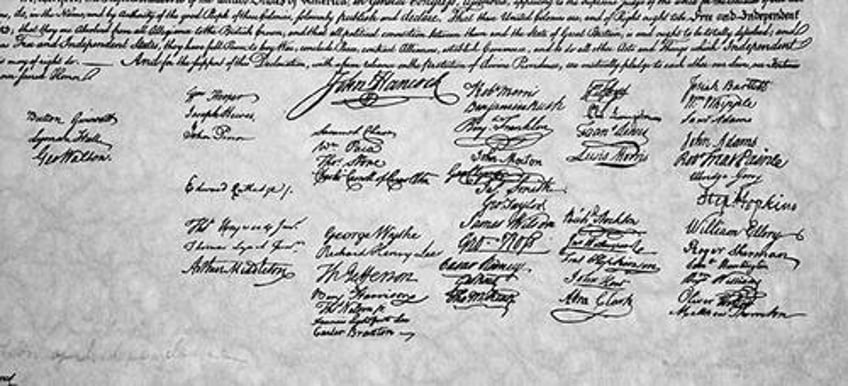 do, in the Name, and by Authority of the good People of these Colonies, solemnly publish and declare, That these United Colonies are, and of Right ought to be, Free and Independent
that they are Absolved from all Allegiance to the British Crown, and that all political connection between them and the State of Great Britain, is and ought to be totally dissolved; and
Free and Independent States, they have full Power to levy War, conclude Peace, contract Alliances, establish Commerce, and to do all other Acts and Things which Independent
may of right do. And for the support of this Declaration, with a firm reliance on the Protection of divine Providence, we mutually pledge to each other our Lives, our Fortunes
our sacred Honor
Button Gwinnett
Lyman Hall
Geo Walton.
Wm Hooper
Joseph Hewes,
John Penn
Edward Rutledge
Thos Heyward Junr.
Thomas Lynch Junr.
Arthur Middleton
John Hancock
Samuel Chase
Wm Paca
Thos. Stone
Charles Carroll of Carrollton
George Wythe
Richard Henry Lee
Th Jefferson
Benj Harrison
Thos Nelson jr.
Francis Lightfoot Lee
Carter Braxton
Robt Morris
Benjamin Rush
Benj. Franklin
John Morton
Geo Clymer
Jas. Smith
Geo. Taylor
James Wilson
Geo. Ross
Caesar Rodney
Geo Read
Tho M:Kean
Phil. Livingston
Frans. Lewis
Lewis Morris
Richd. Stockton
Jno Witherspoon
Fras. Hopkinson
John Hart
Abra Clark
Josiah Bartlett
Wm Whipple
Saml Adams
John Adams
Robt Treat Paine
Elbridge Gerry
Step Hopkins
William Ellery
Roger Sherman
Saml Huntington
Wm Williams
Oliver Wolcott
Matthew Thornton